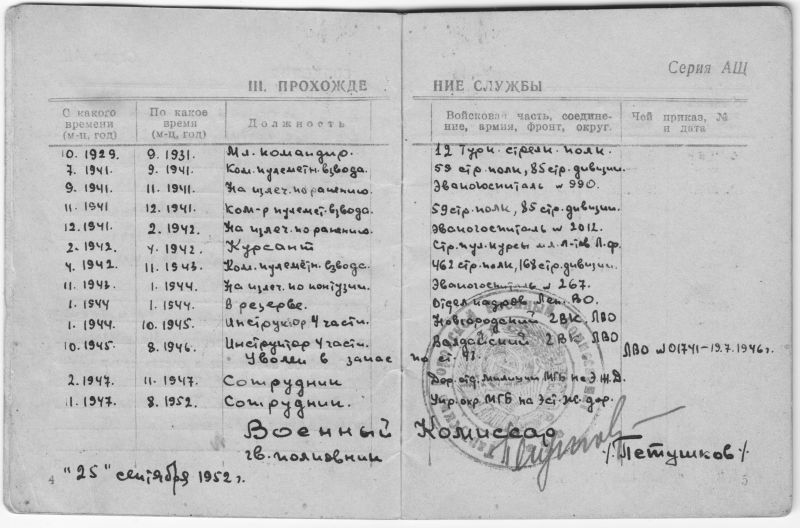 Серия АЩ
III. ПРОХОЖДЕНИЕ СЛУЖБЫ
С какого времени (м-ц, год) По какое время (м-ц, год) Должность Войсковая часть, соединение, армия, фронт, округ. Чей приказ, № и дата
10. 1929. 9. 1931. Мл. командир. 12 Турк. стрелк. полк.
7. 1941. 9. 1941. Ком. пулеметн. взвода. 59 стр. полк, 85 стр. дивизии.
9. 1941. 11. 1941. На излеч. по ранению. Эвакогоспиталь № 990.
11. 1941 12. 1941. Ком-р пулемет. взвода. 59 стр. полк, 85 стр. дивизии.
12. 1941. 2. 1942. На излеч. по ранению. Эвакогоспиталь № 2012.
2. 1942. 4. 1942. Курсант Стр. пул. курсы мл. л-тов Л.ф.
4. 1942. 11. 1943. Ком. пулемётн. взвода. 462 стр. полк, 168 стр. дивизии.
11. 1943. 1. 1944. На излеч. по контузии. Эвакогоспиталь № 267.
1. 1944 1. 1944. В резерве. Отдел кадров Лен. ВО.
1. 1944. 10. 1945. Инструктор 4 части. Новгородский 2ВК ЛВО
10. 1945. 8. 1946. Инструктор 4 части. Валдайский 2ВК ЛВО ЛВО № 01741-19.7.1946 г.
Уволен в запас по ст. 43
2. 1947. 11. 1947. Сотрудник Дор. отд. милиции МГБ на Э.Ж.Д.
11. 1947. 8. 1952. Сотрудник. Упр. окр МГБ на Эст. Ж. дор.
Военный Комиссар
гв. полковник /Петушков/
"25" сентября 1952 г.
4 5